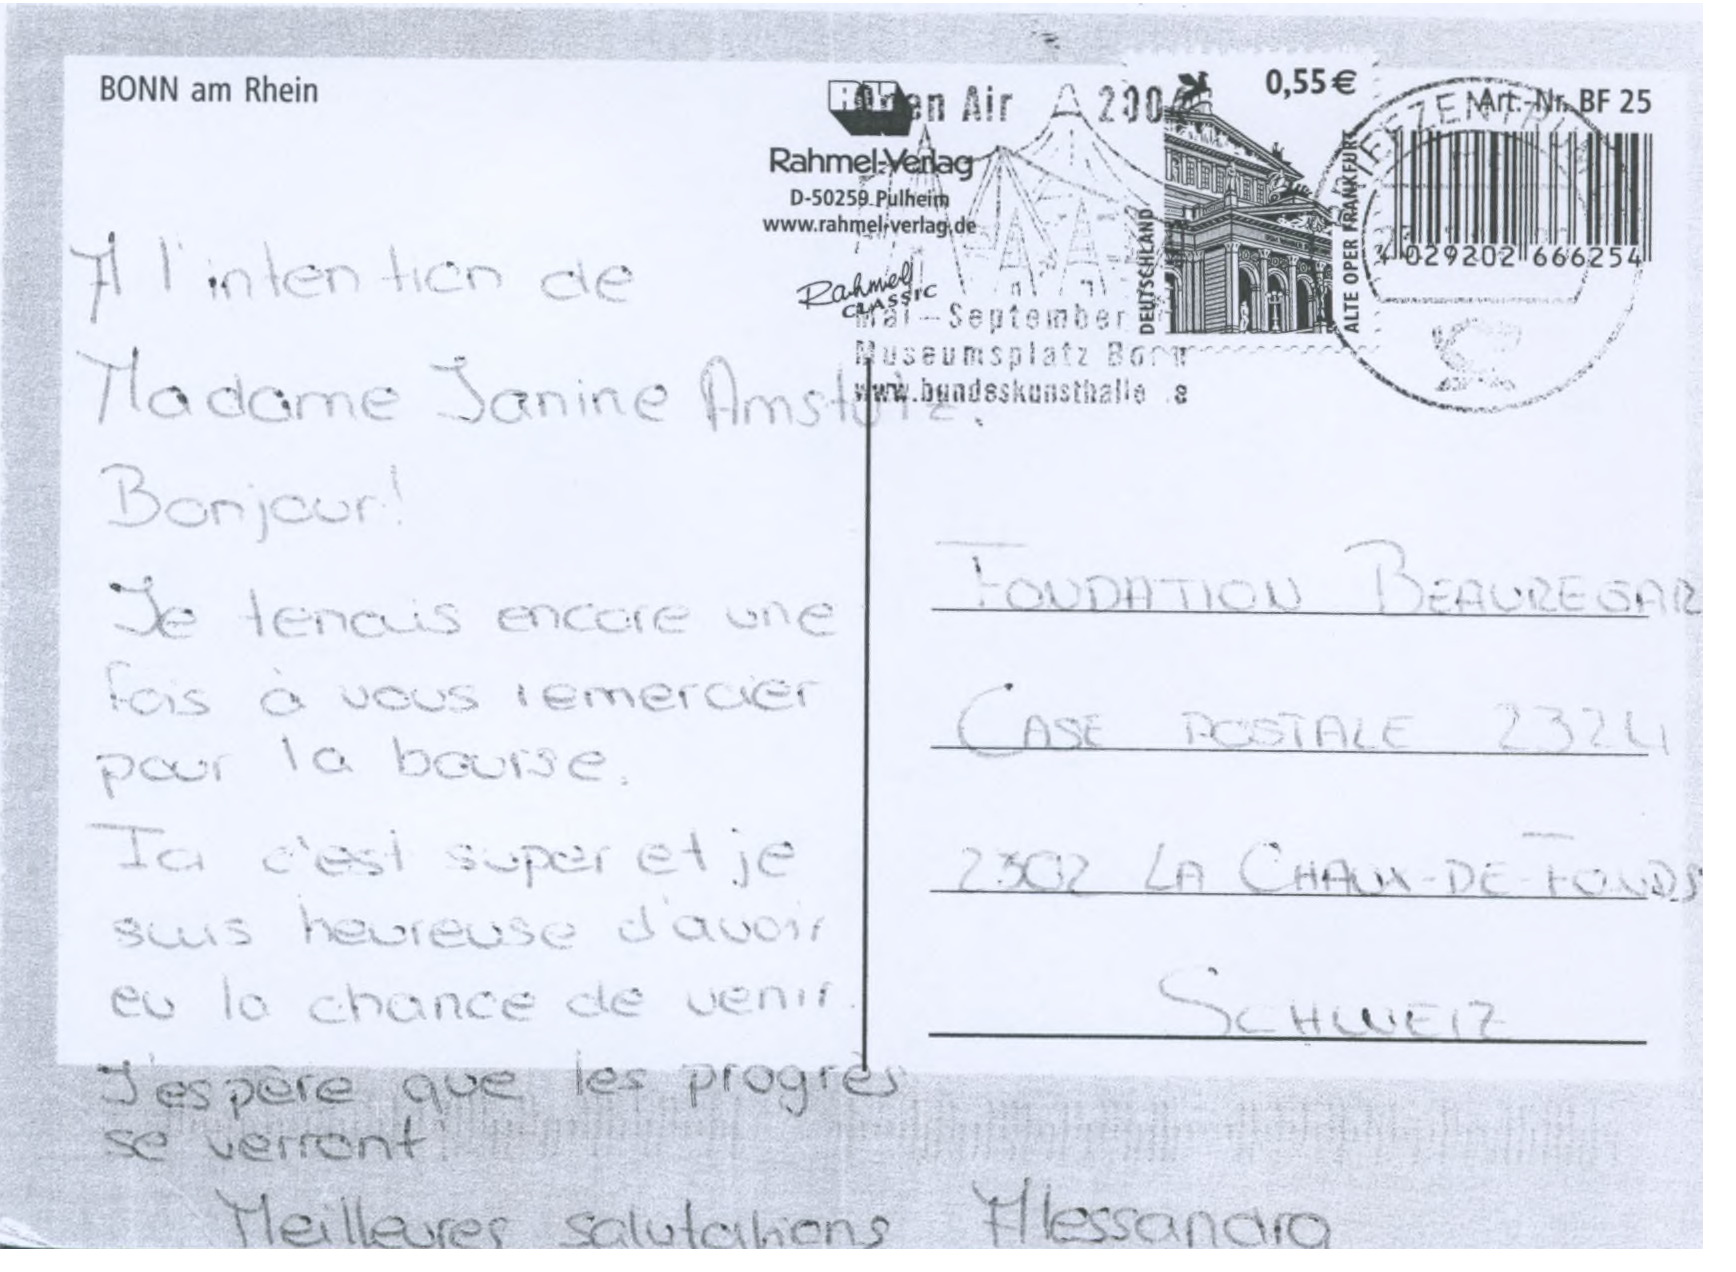 BONN am Rhein
Open Air 200
Rahmel-Verlag
D-50259 Pulheim
www.rahmel-verlag.de
Rahmel
CLASSIC
Mai–September
Museumsplatz Bonn
www.bundeskunsthalle
0,55€
DEUTSCHLAND
ALTE OPER FRANKFURT
Art.-Nr. BF 25
4 029202 666254
A l'intention de
Madame Janine Amstutz.
Bonjour!
Je tenais encore une
fois à vous remercier
pour la bourse.
Ici c'est super et je
suis heureuse d'avoir
eu la chance de venir.
J'espère que les progrès
se verront.
Meilleures salutations Alessandra
FONDATION BEAUREGAR
CASE POSTALE 2324
2302 LA CHAUX-DE-FONDS
SCHWEIZ